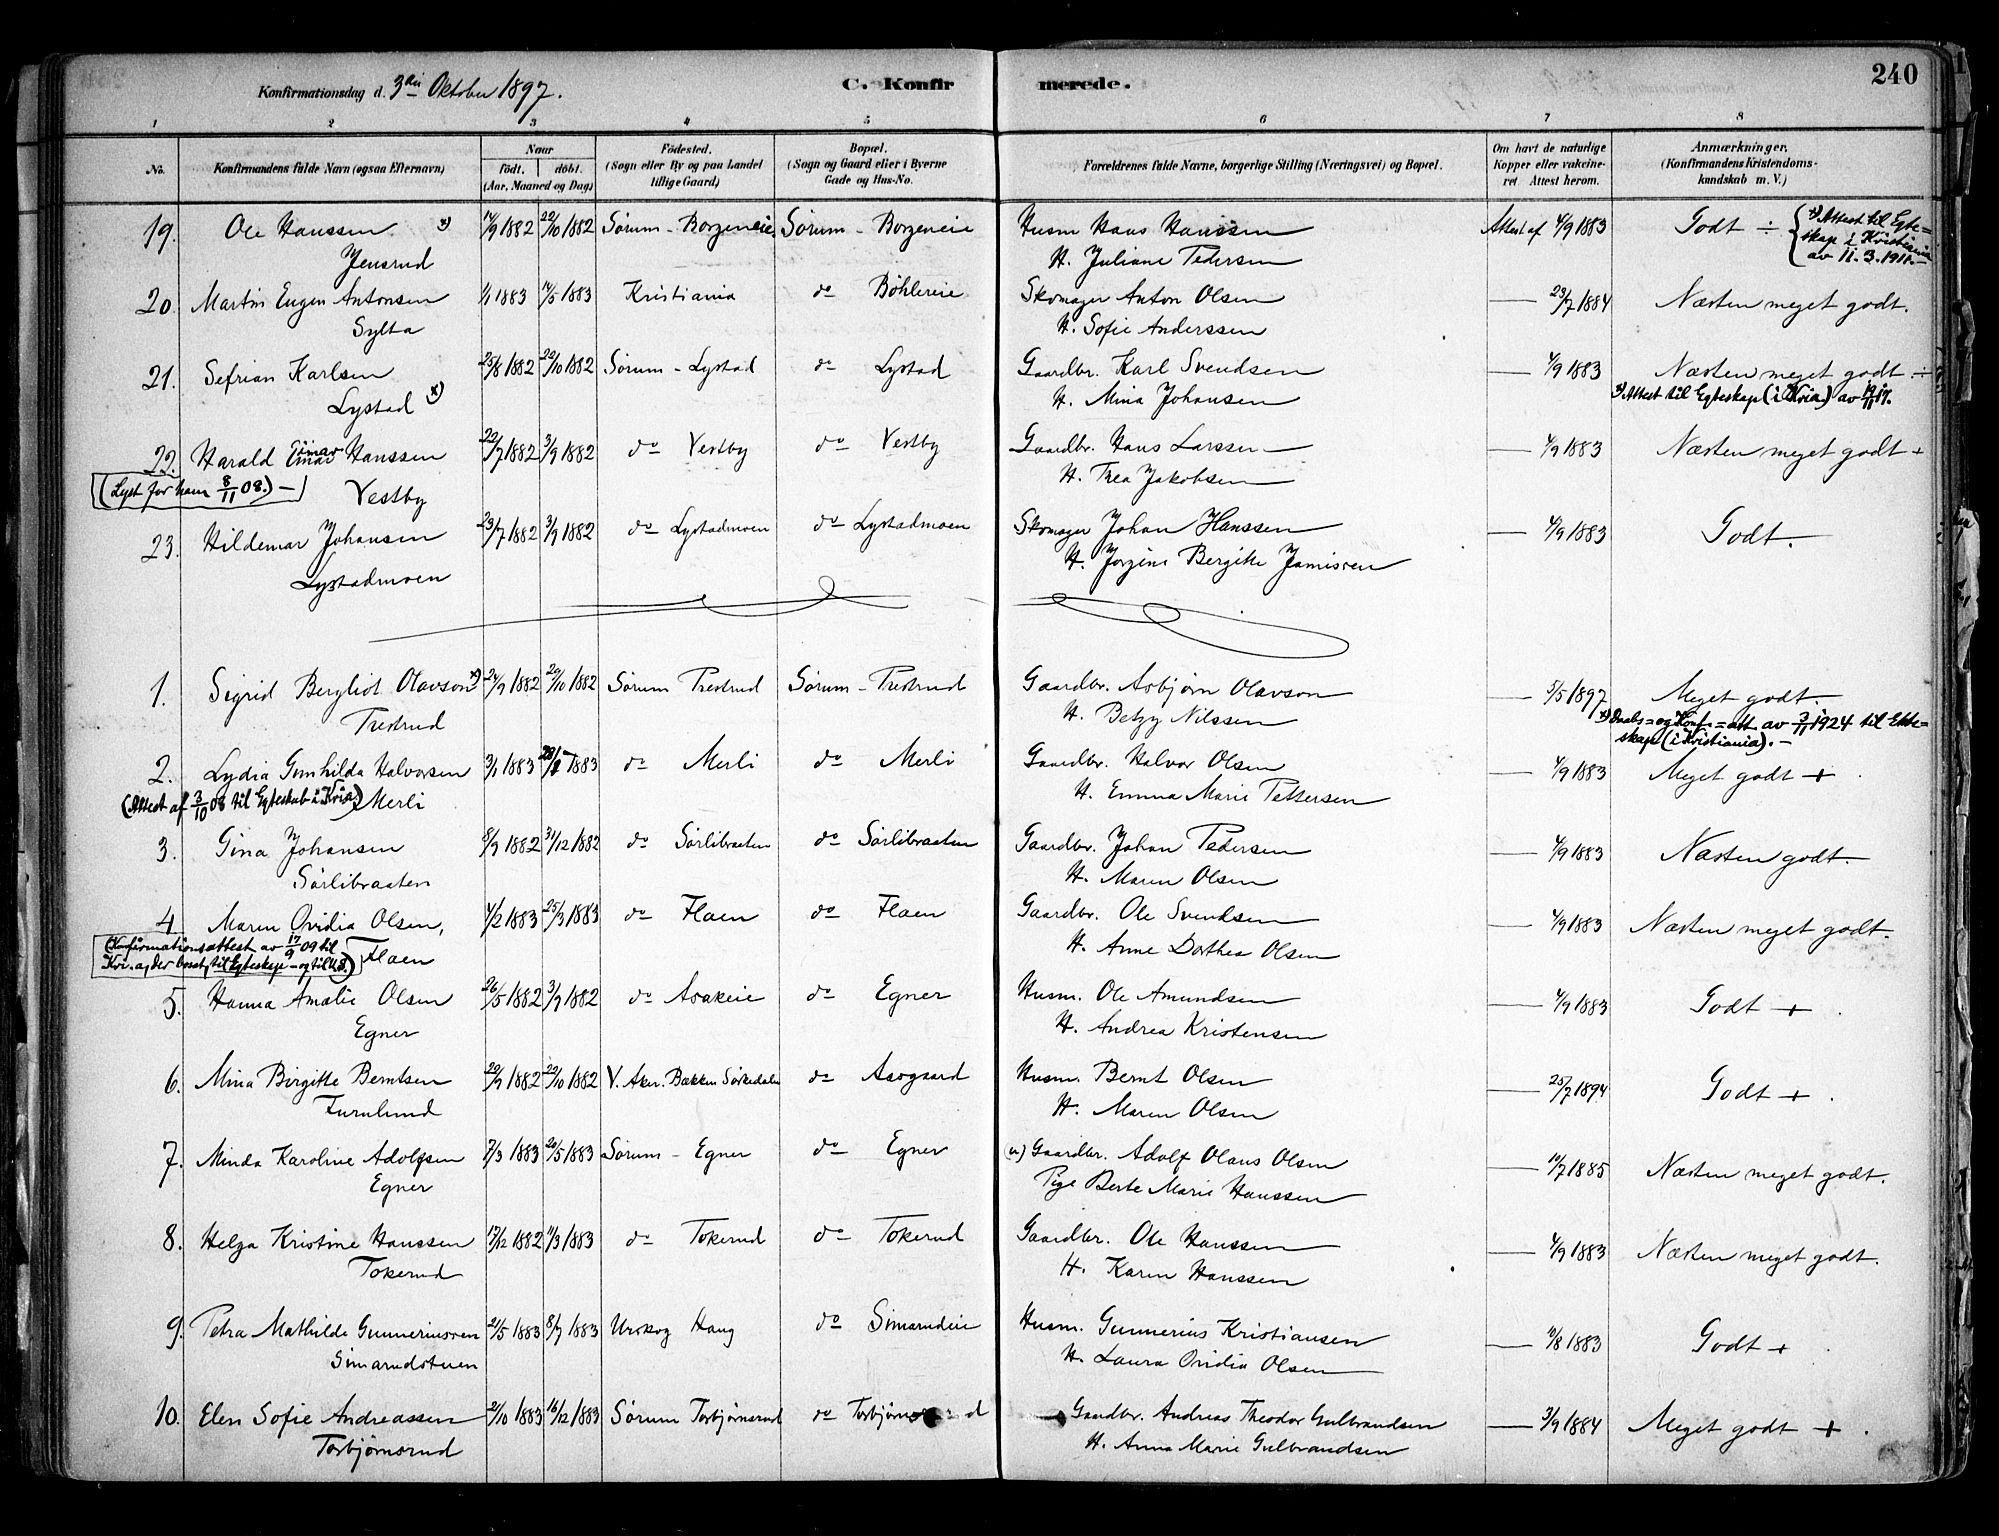 240
Konfirmationsdag d. 3die Oktober 1897.
C. Konfirmerede.
1 2 3 4 5 6 7 8
No.
Konfirmandens fulde Navn (ogsaa Efternavn)
Naar
født. døbt.
(Aar, Maaned og Dag)
Fødested.
(Sogn eller By og paa Landet
tillige Gaard)
Bopæl.
(Sogn og Gaard eller i Byerne
Gade og Hus-No.
Forældrenes fulde Navne, borgerlige Stilling (Næringsvei) og Bopæl.
Om havt de naturlige
Kopper eller vakcineret.
Attest herom.
Anmærkninger.
(Konfirmandens Kristendomskundskab
m. V.)
19. Ole Hanssen x) 14/9 1882 22/10 1882 Sørum - Borgeneie Sørum - Borgeneie Husm Hans Hanssen Attest af 4/9 1883 Godt ÷
Jensrud H. Juliane Pedersen
x) Attest til Egte=
skap i Kristiania
av 11. 3. 1911.
20. Martin Eugen Antonsen 1/1 1883 14/5 1883 Kristiania do Böhlereie Skomager Anton Olsen — 23/7 1884 Næsten meget godt.
Sylta H. Sofie Anderssen
21. Sefrian Karlsen 25/8 1882 22/10 1882 Sørum - Lystad do Lystad Gaardbr. Karl Svendsen — 4/9 1883 Næsten meget godt ÷
Lystad x) H. Mina Johansen x) Attest til Egteskap (i Kria.) av 19/11 17.
22. Harald Einar Hanssen 22/7 1882 3/9 1882 do Vestby do Vestby Gaardbr. Hans Larssen — 4/9 1883 Næsten meget godt +
(Lyst for ham 8/11 08.) — Vestby H. Trea Jakobsen
23. Hildemar Johansen 23/7 1882 3/9 1882 do Lystadmoen do Lystadmoen Skomager Johan Hanssen — 4/9 1883 Godt.
Lystadmoen H. Jorgine Bergitte
1. Sigrid Bergliot Olavson x) 24/9 1882 29/10 1882 Sørum Prestrud Sørum - Prestrud Gaardbr. Asbjørn Olavson — 5/5 1897 Meget godt.
Prestrud H. Betzy Nilssen
x) Daabs= og Konf.=att. av 3/11 1924 til Ekte=
skap (i Kristiania). —
2. Lydia Gunhilda Halvorsen 3/1 1883 1883 do Merli do Merli Gaardbr. Halvor Olsen — 4/9 1883 Meget godt +
(Attest af 3/10 08 til Egteskab i Kria.) Merli H. Emma Marie Pettersen
3. Gina Johansen 8/9 1882 31/12 1882 do Sørlibraaten do Sørlibraaten Gaardbr. Johan Pedersen — 4/9 1883 Næsten godt
Sørlibraaten H. Maren Olsen
4. Maren Ovidia Olsen, 4/2 1883 25/3 1883 do Flaen do Flaen Gaardbr. Ole Svendsen — 4/9 1883 Næsten meget godt.
(Konfirmationsattest av 17/9 09 til
Kri.a, der bosat, til Egteskap - og til do.) Flaen H. Anne Dorthea Olsen
5. Hanna Amalie Olsen 26/5 1882 3/9 1882 do Asakeie do Egner Husm. Ole Amundsen — 4/9 1883 Godt +
Egner H. Andrea Kristensen
6. Mina Birgitte Berntsen 20/9 1882 29/10 1882 V. Aker. Bakken Sørkedalen do Asogaard Husm. Bernt Olsen — 25/7 1894 Godt +
Furulund H. Maren Olsen
7. Minda Karoline Adolfsen 7/3 1883 20/5 1883 Sørum - Egner do Egner (u) Gaardbr. Adolf Olaus Olsen — 10/7 1885 Næsten meget godt.
Egner Pige Berte Marie Hanssen
8. Helga Kristine Hanssen 17/12 1882 11/3 1883 do Tokerud do Tokerud Gaardbr. Ole Hanssen — 4/9 1883 Næsten meget godt.
Tokerud H. Karen Hanssen
9. Petra Mathilde Gunneriusen 21/5 1883 8/7 1883 Urskog Haug do Simarudeie Husm. Gunnerius Kristiansen — 10/8 1883 Godt +
Simarudstuen H. Laura Ovidia Olsen
10. Elen Sofie Andreassen 21/10 1883 16/12 1883 Sørum Torbjørnsrud do Torbjørnsrud Gaardbr. Andreas Theodor Gulbrandsen — 3/9 1884 Meget godt +
Torbjørnsrud H. Anna Marie Gulbrandsen